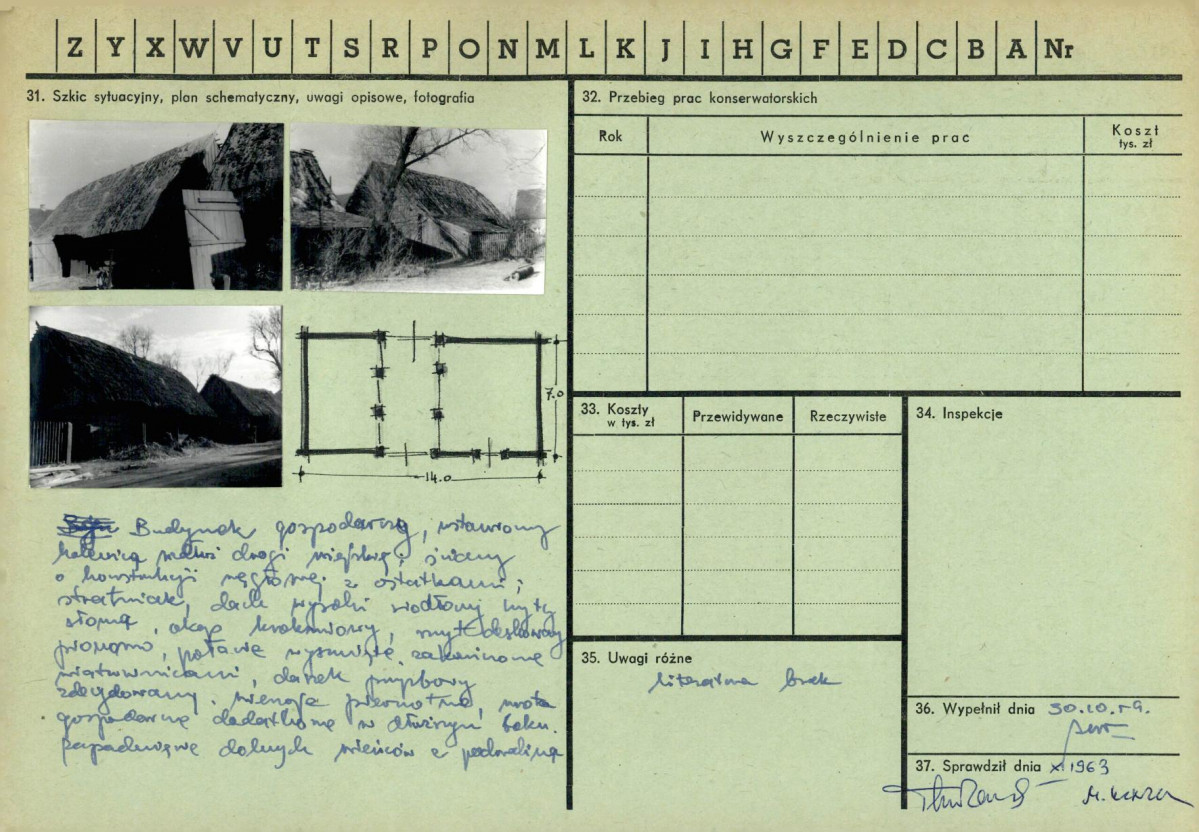 Z Y X W V U T S R P O N M L K J I H G F E D C B A Nr
31. Szkic sytuacyjny, plan schematyczny, uwagi opisowe, fotografia
7.0
14.0
Budynek gospodarczy, ustawiony
kalenicą wzdłuż drogi wiejskiej; ściany
o konstrukcji węgłowej z ostatkami;
dach wysoki siodłowy kryty
słomą, okap krokwiowy, szczyt deskowany
pionowo, połacie wysunięte zakończone
wiatrownicami, daszek przyzbowy
zdegradowany. pierwotna, wrota
gospodarcze dodatkowe w dłuższym boku.
dolnych wieńców z podwaliną
32. Przebieg prac konserwatorskich
Rok
Wyszczególnienie prac
Koszt
tys. zł
33. Koszty
w tys. zł
Przewidywane
Rzeczywiste
34. Inspekcje
35. Uwagi różne
literatura brak
36. Wypełnił dnia 30.10.59.
37. Sprawdził dnia X 1963